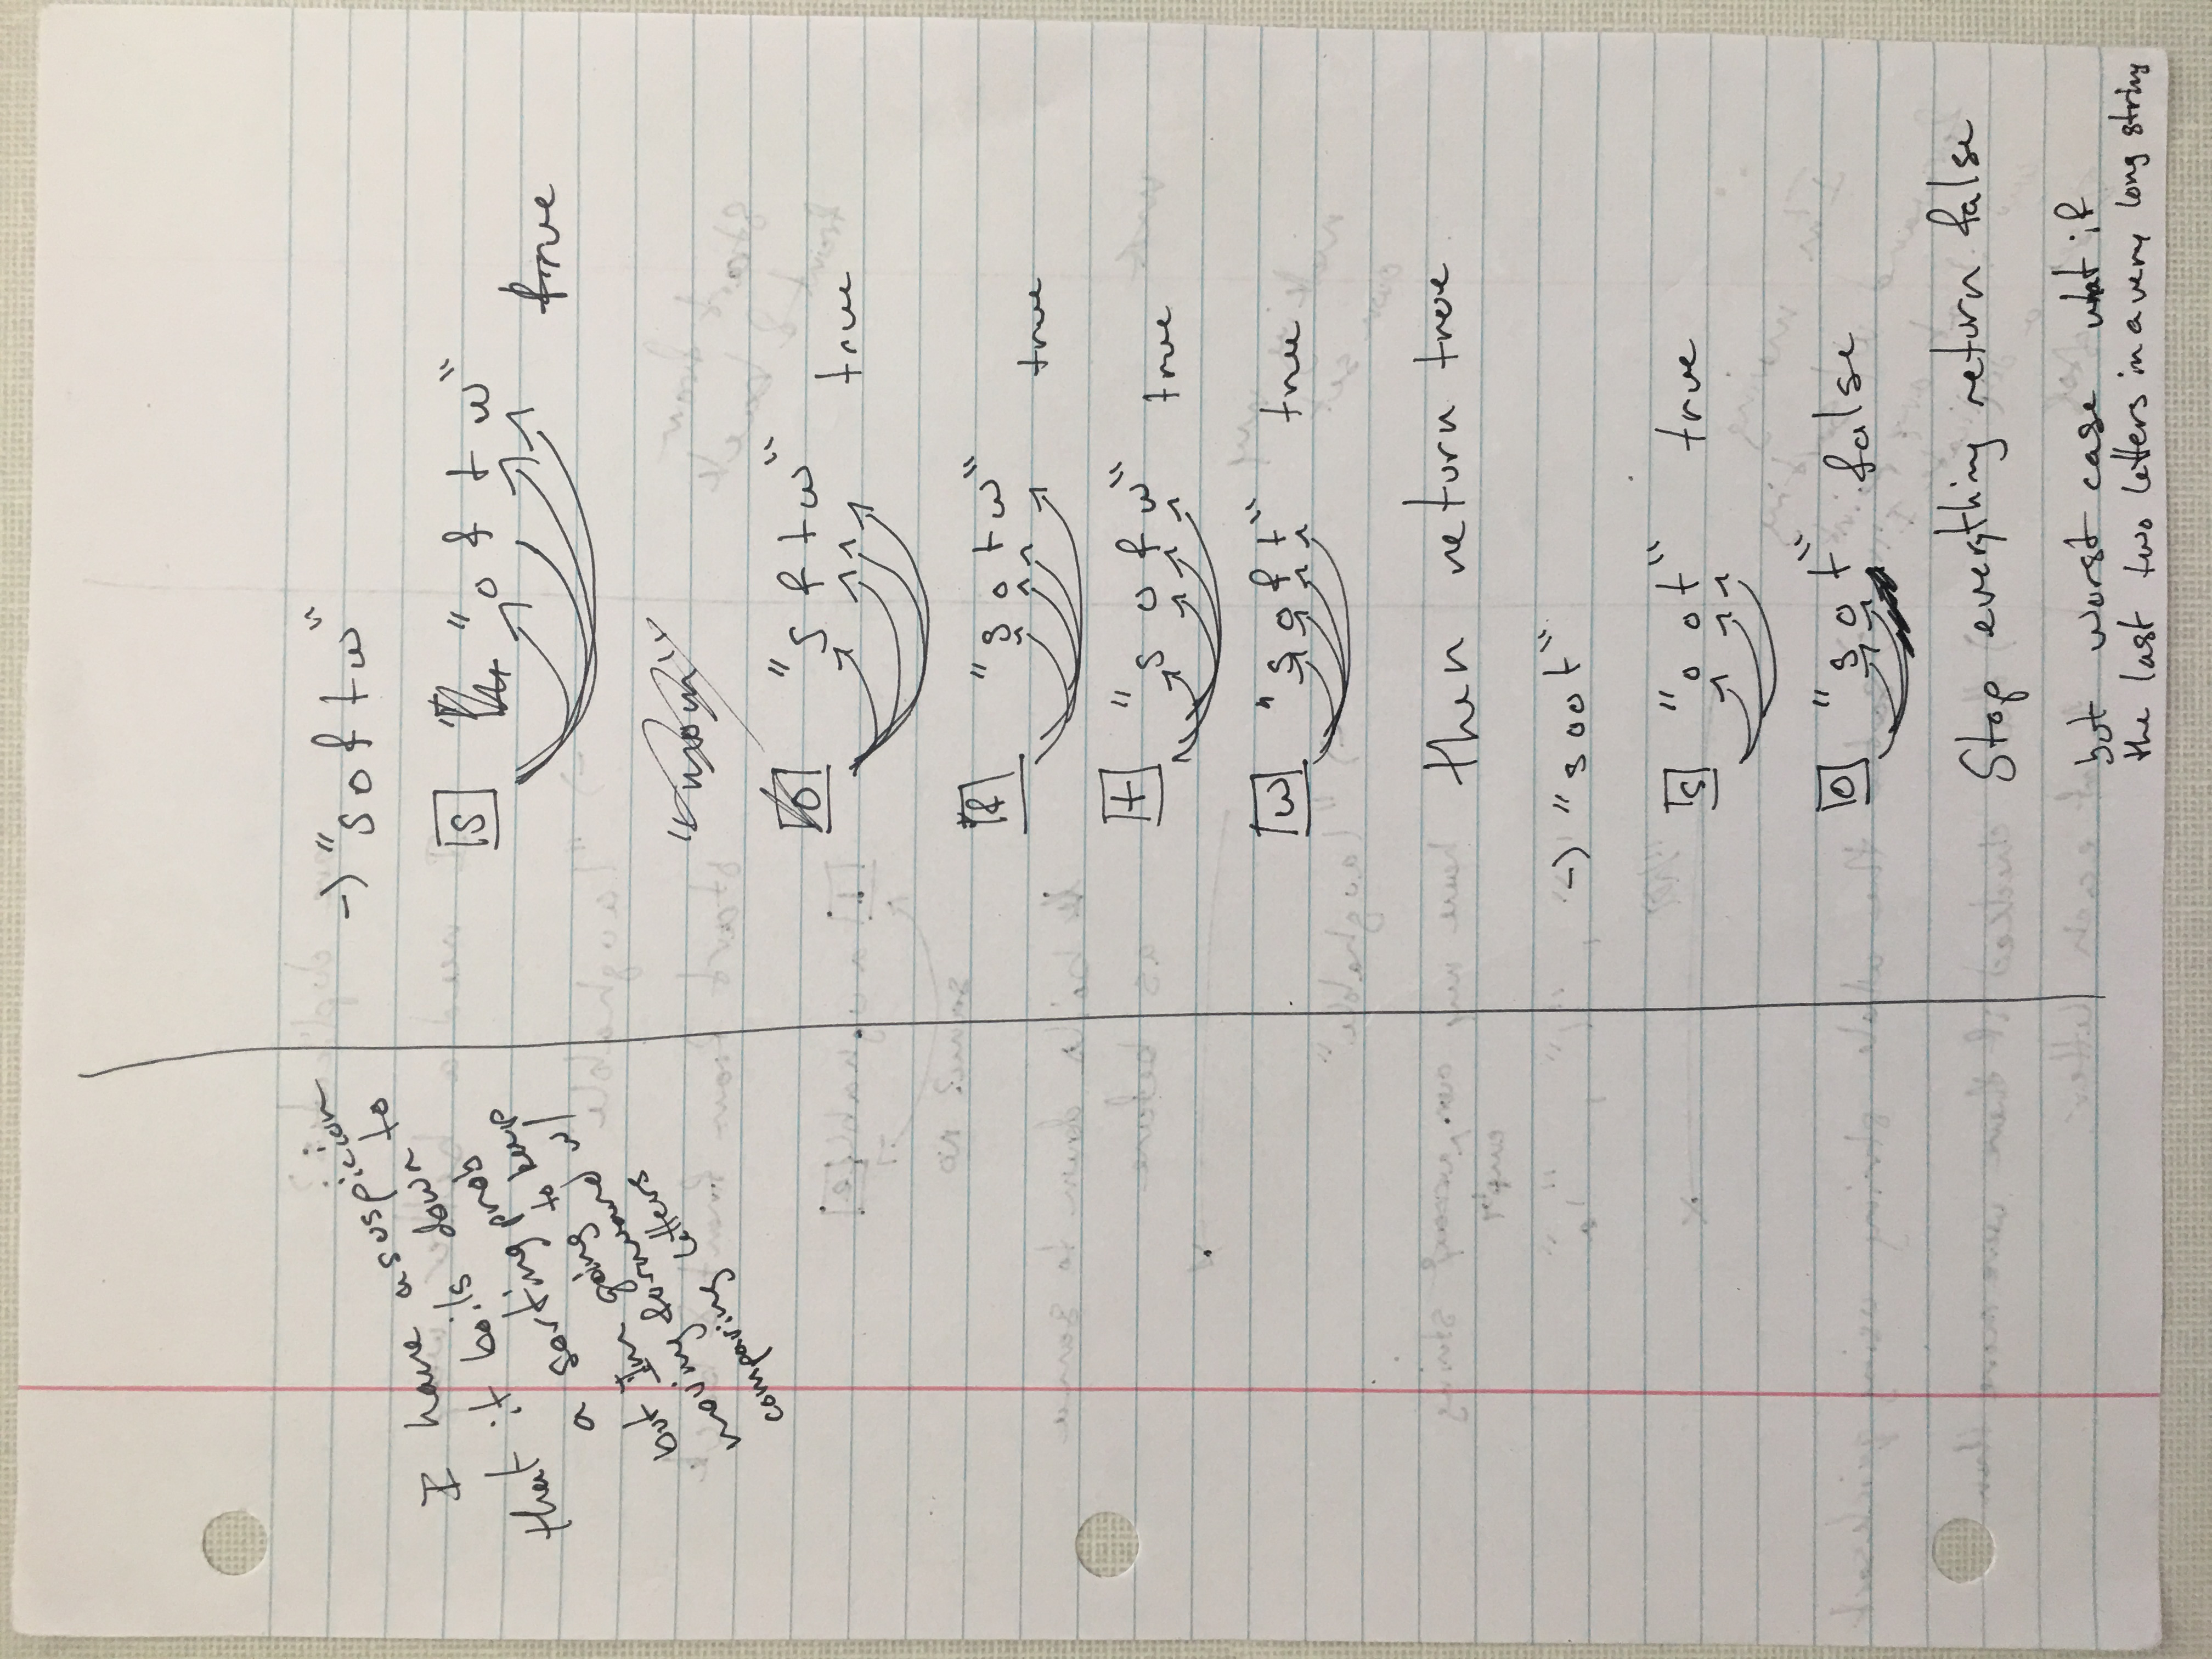 I have a suspicion
that it boils down to
a sorting prob
but I'm going to keep
moving forward w/
comparing letters
-) "softw"
S "o f t w" true
"mom"
o "s f t w" true
f "s o t w" true
t "s o f w" true
w "s o f t" true
then return true
-) "soot"
s "o o t" true
o "s o t" false
Stop everything return false
but worst case what if
the last two letters in a very long string